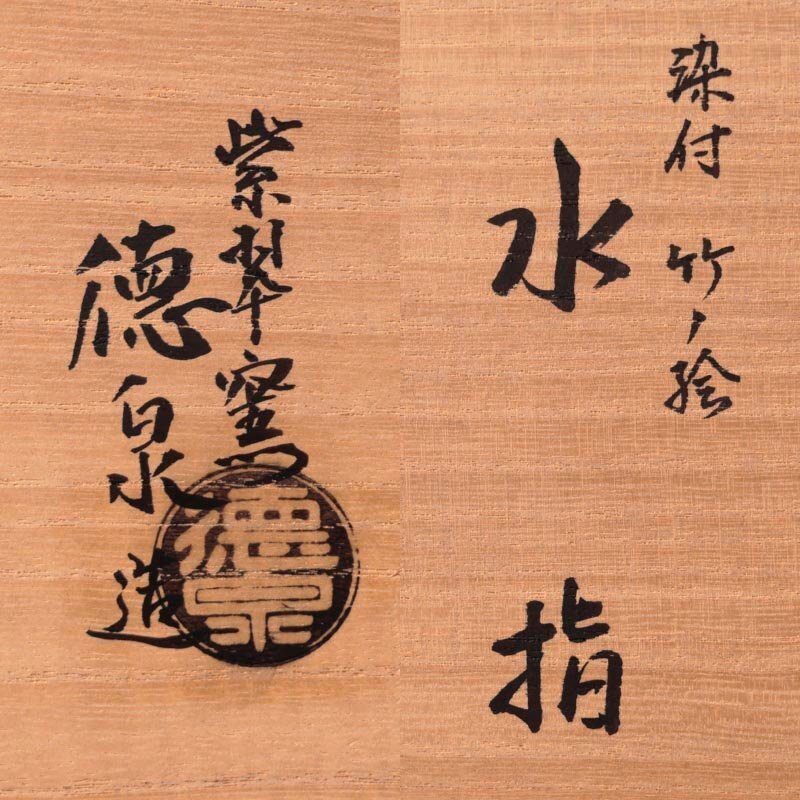 染付 竹ノ絵
水指
紫翠窯
徳泉造
徳泉